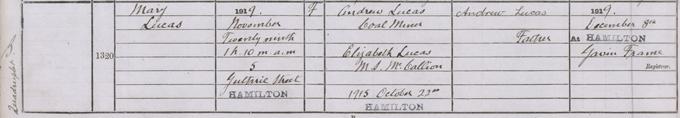 Quadruplet
1320
Mary
Lucas
1919.
November
Twenty ninth
1h. 10m. a.m.
5
Guthrie Street
HAMILTON
F
Andrew Lucas
Coal Miner
Elizabeth Lucas
M.S. McCallion
1915 October 22nd
HAMILTON
Andrew Lucas
Father
1919.
December 8th
At HAMILTON
Gavin Frame
Registrar.